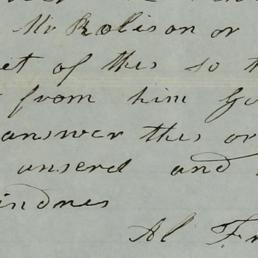 Mr Robison or
et of this so t
from him
answer this or
unserd and
indnes
Al Fr